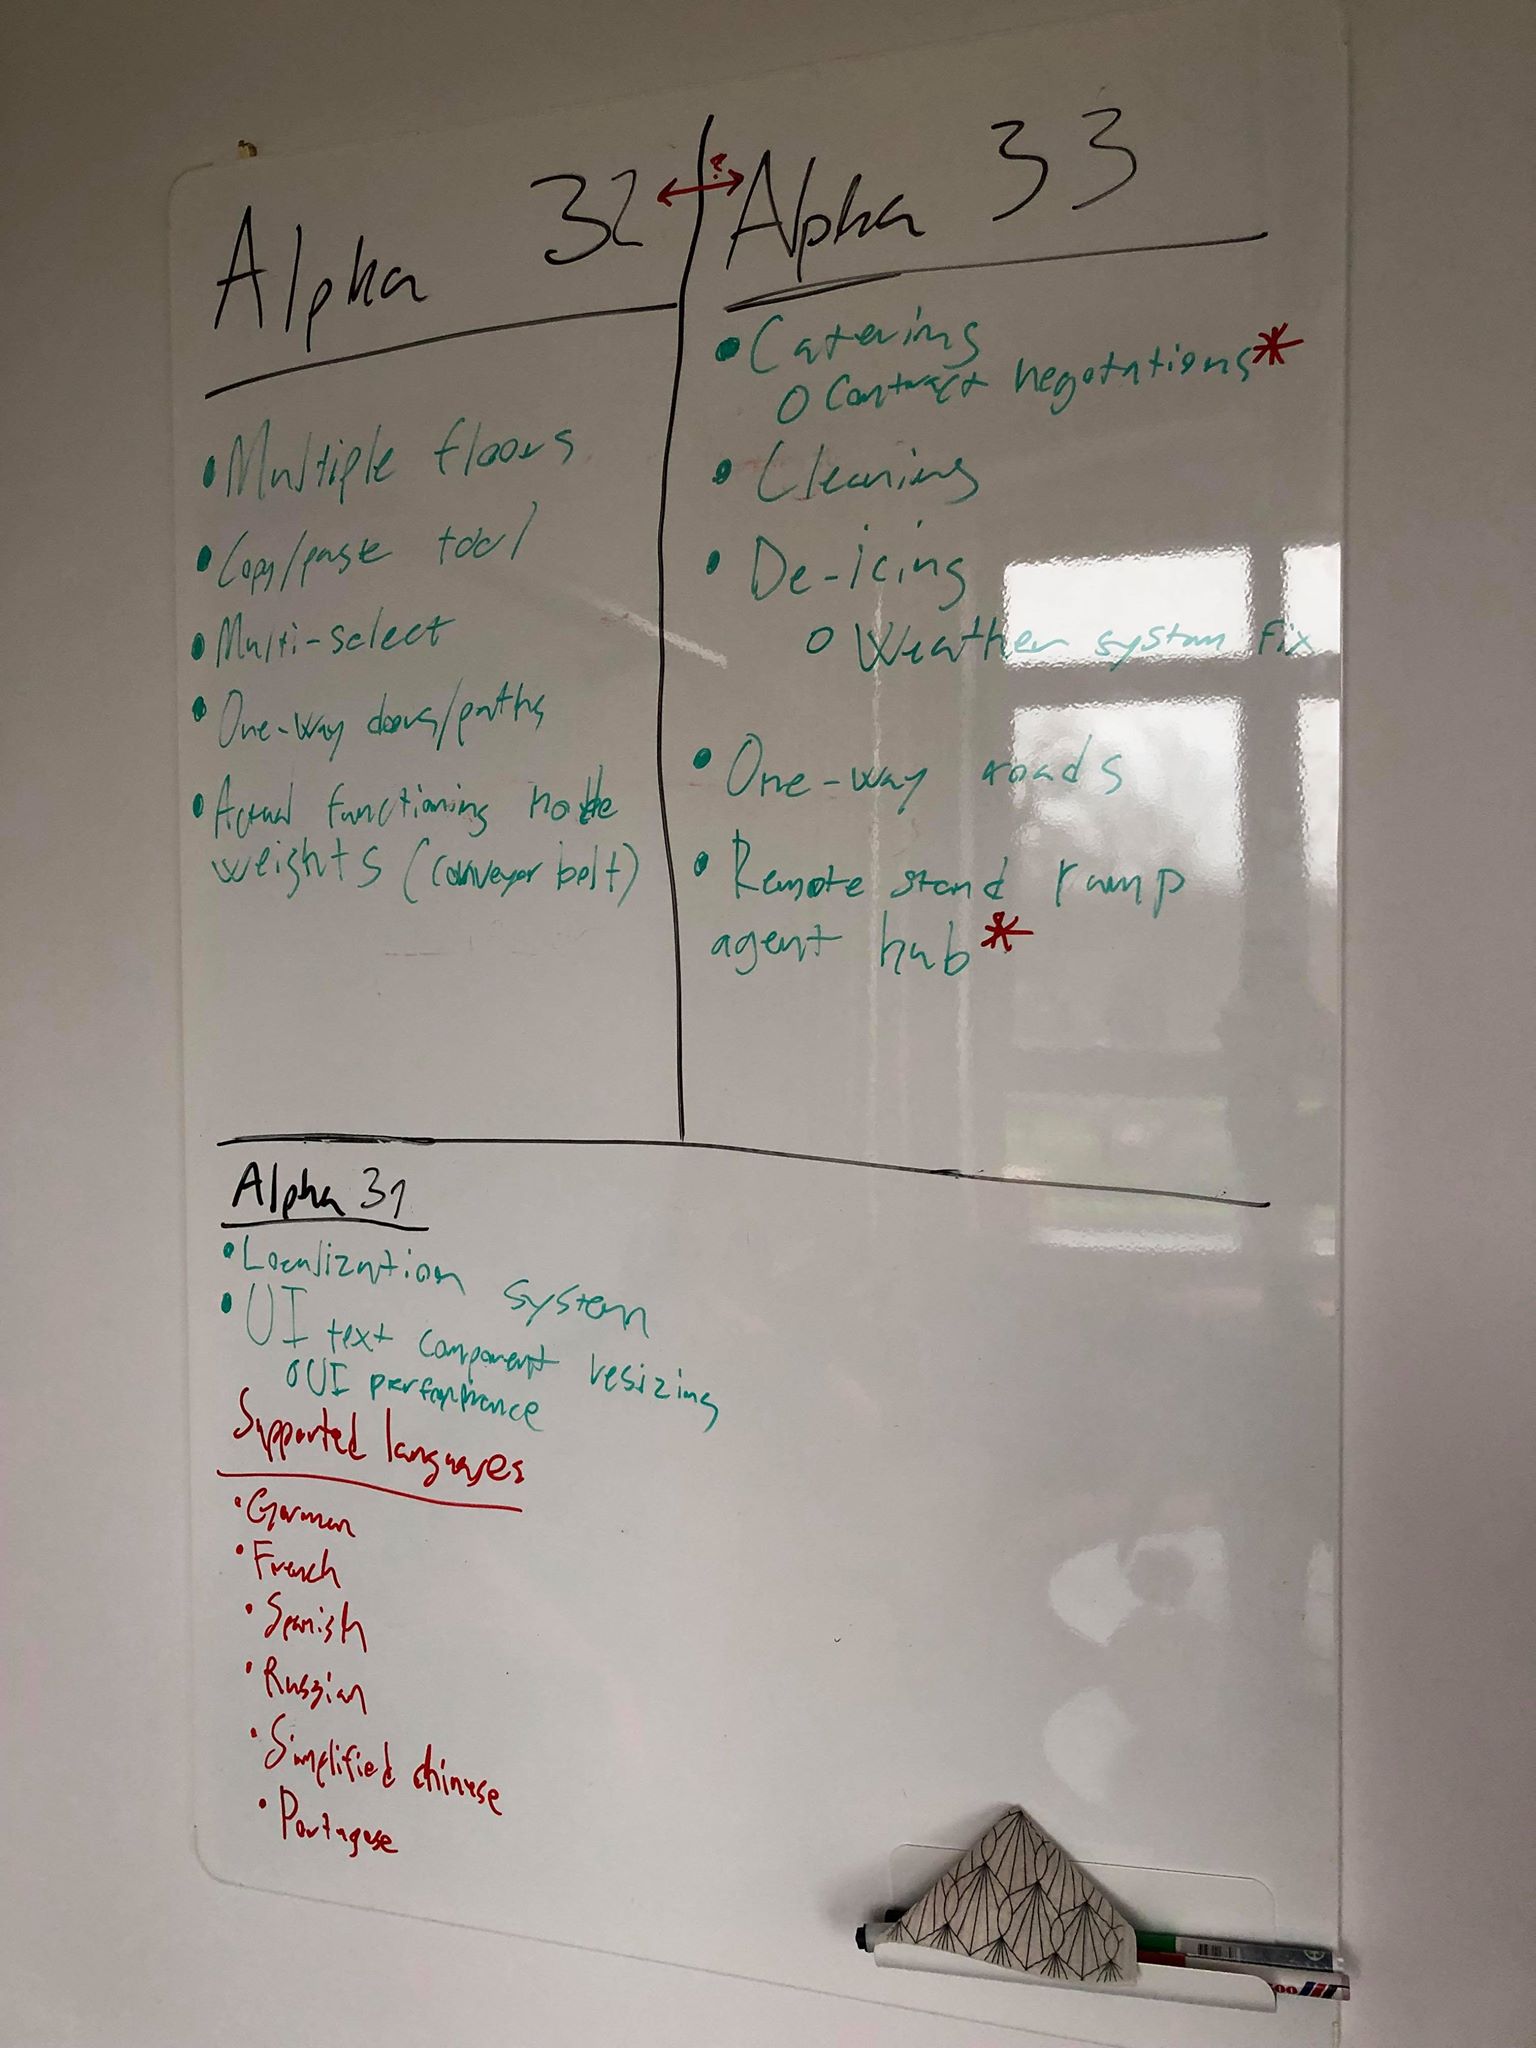 Alpha 32
• Multiple floors
• Copy/paste tool
• Multi-select
• One-way doors/paths
• Actual functioning node
weights (conveyor belt)
?
Alpha 33
• Catering
o Contract negotations*
• Cleaning
• De-icing
o Weather system fix
• One-way roads
• Remote stand ramp
agent hub*
Alpha 31
• Localization system
• UI text component resizing
o UI performance
Supported languages
• German
• French
• Spanish
• Russian
• Simplified chinese
• Portugese